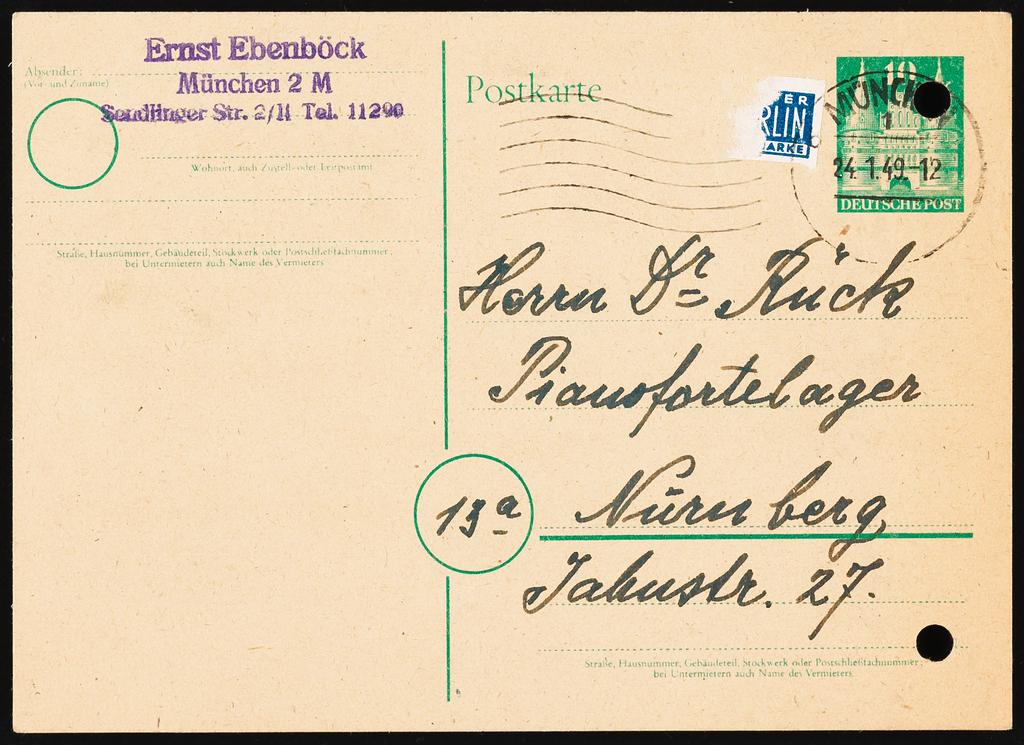 Ernst Ebenböck
Absender:
(Vor- und Zuname)
München 2 M
Sendlinger Str. 2/II Tel. 11290
Wohnort, auch Zustell- oder Leitpostamt
Straße, Hausnummer, Gebäudeteil, Stockwerk oder Postschließfachnummer;
bei Untermietern auch Name des Vermieters
Postkarte
ER
RLIN
ARKE
10
MÜNCH
1
24.1.49.-12
DEUTSCHE POST
Herrn Dr Rück
Pianofortelager
13a
Nürnberg
Jahnstr. 27.
Straße, Hausnummer, Gebäudeteil, Stockwerk oder Postschließfachnummer;
bei Untermietern auch Name des Vermieters